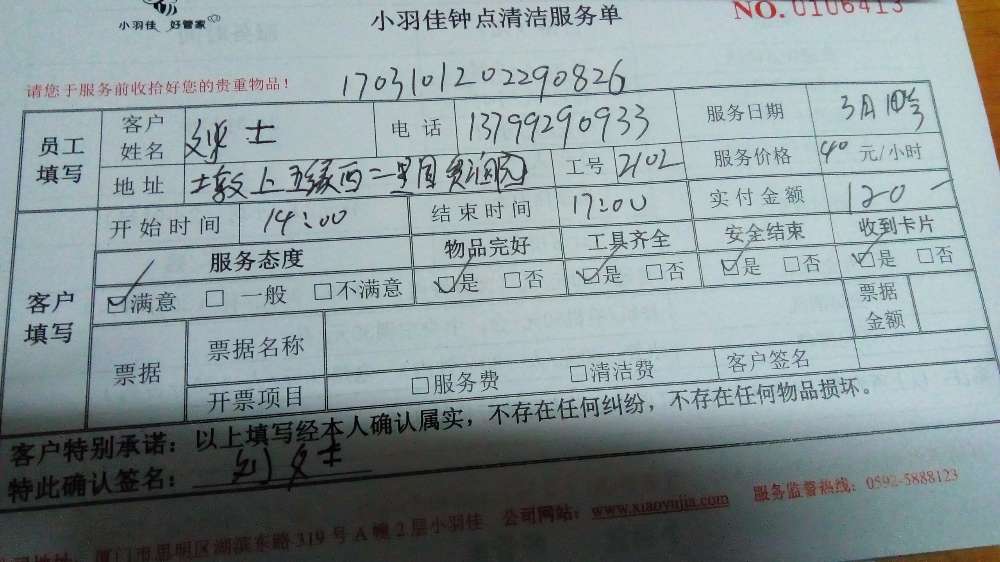 小羽佳 好管家
小羽佳钟点清洁服务单
NO. 0106413
请您于服务前收拾好您的贵重物品！
1703101202290826
员工填写
客户姓名 士
电话 13799290933
服务日期 3月 号
地址 上五缘西二里国贸润园
工号 2102
服务价格 40 元/小时
客户填写
开始时间 14:00
结束时间 17:00
实付金额 120-
服务态度 物品完好 工具齐全 安全结束 收到卡片
☑满意 □一般 □不满意 ☑是 □否 ☑是 □否 ☑是 □否 ☑是 □否
票据
票据名称
票据金额
开票项目 □服务费 □清洁费 客户签名
客户特别承诺：以上填写经本人确认属实，不存在任何纠纷，不存在任何物品损坏。
特此确认签名：刘女士
厦门市思明区湖滨东路319号A幢2层小羽佳 公司网站：www.xiaoyujia.com 服务监督热线：0592-5888123